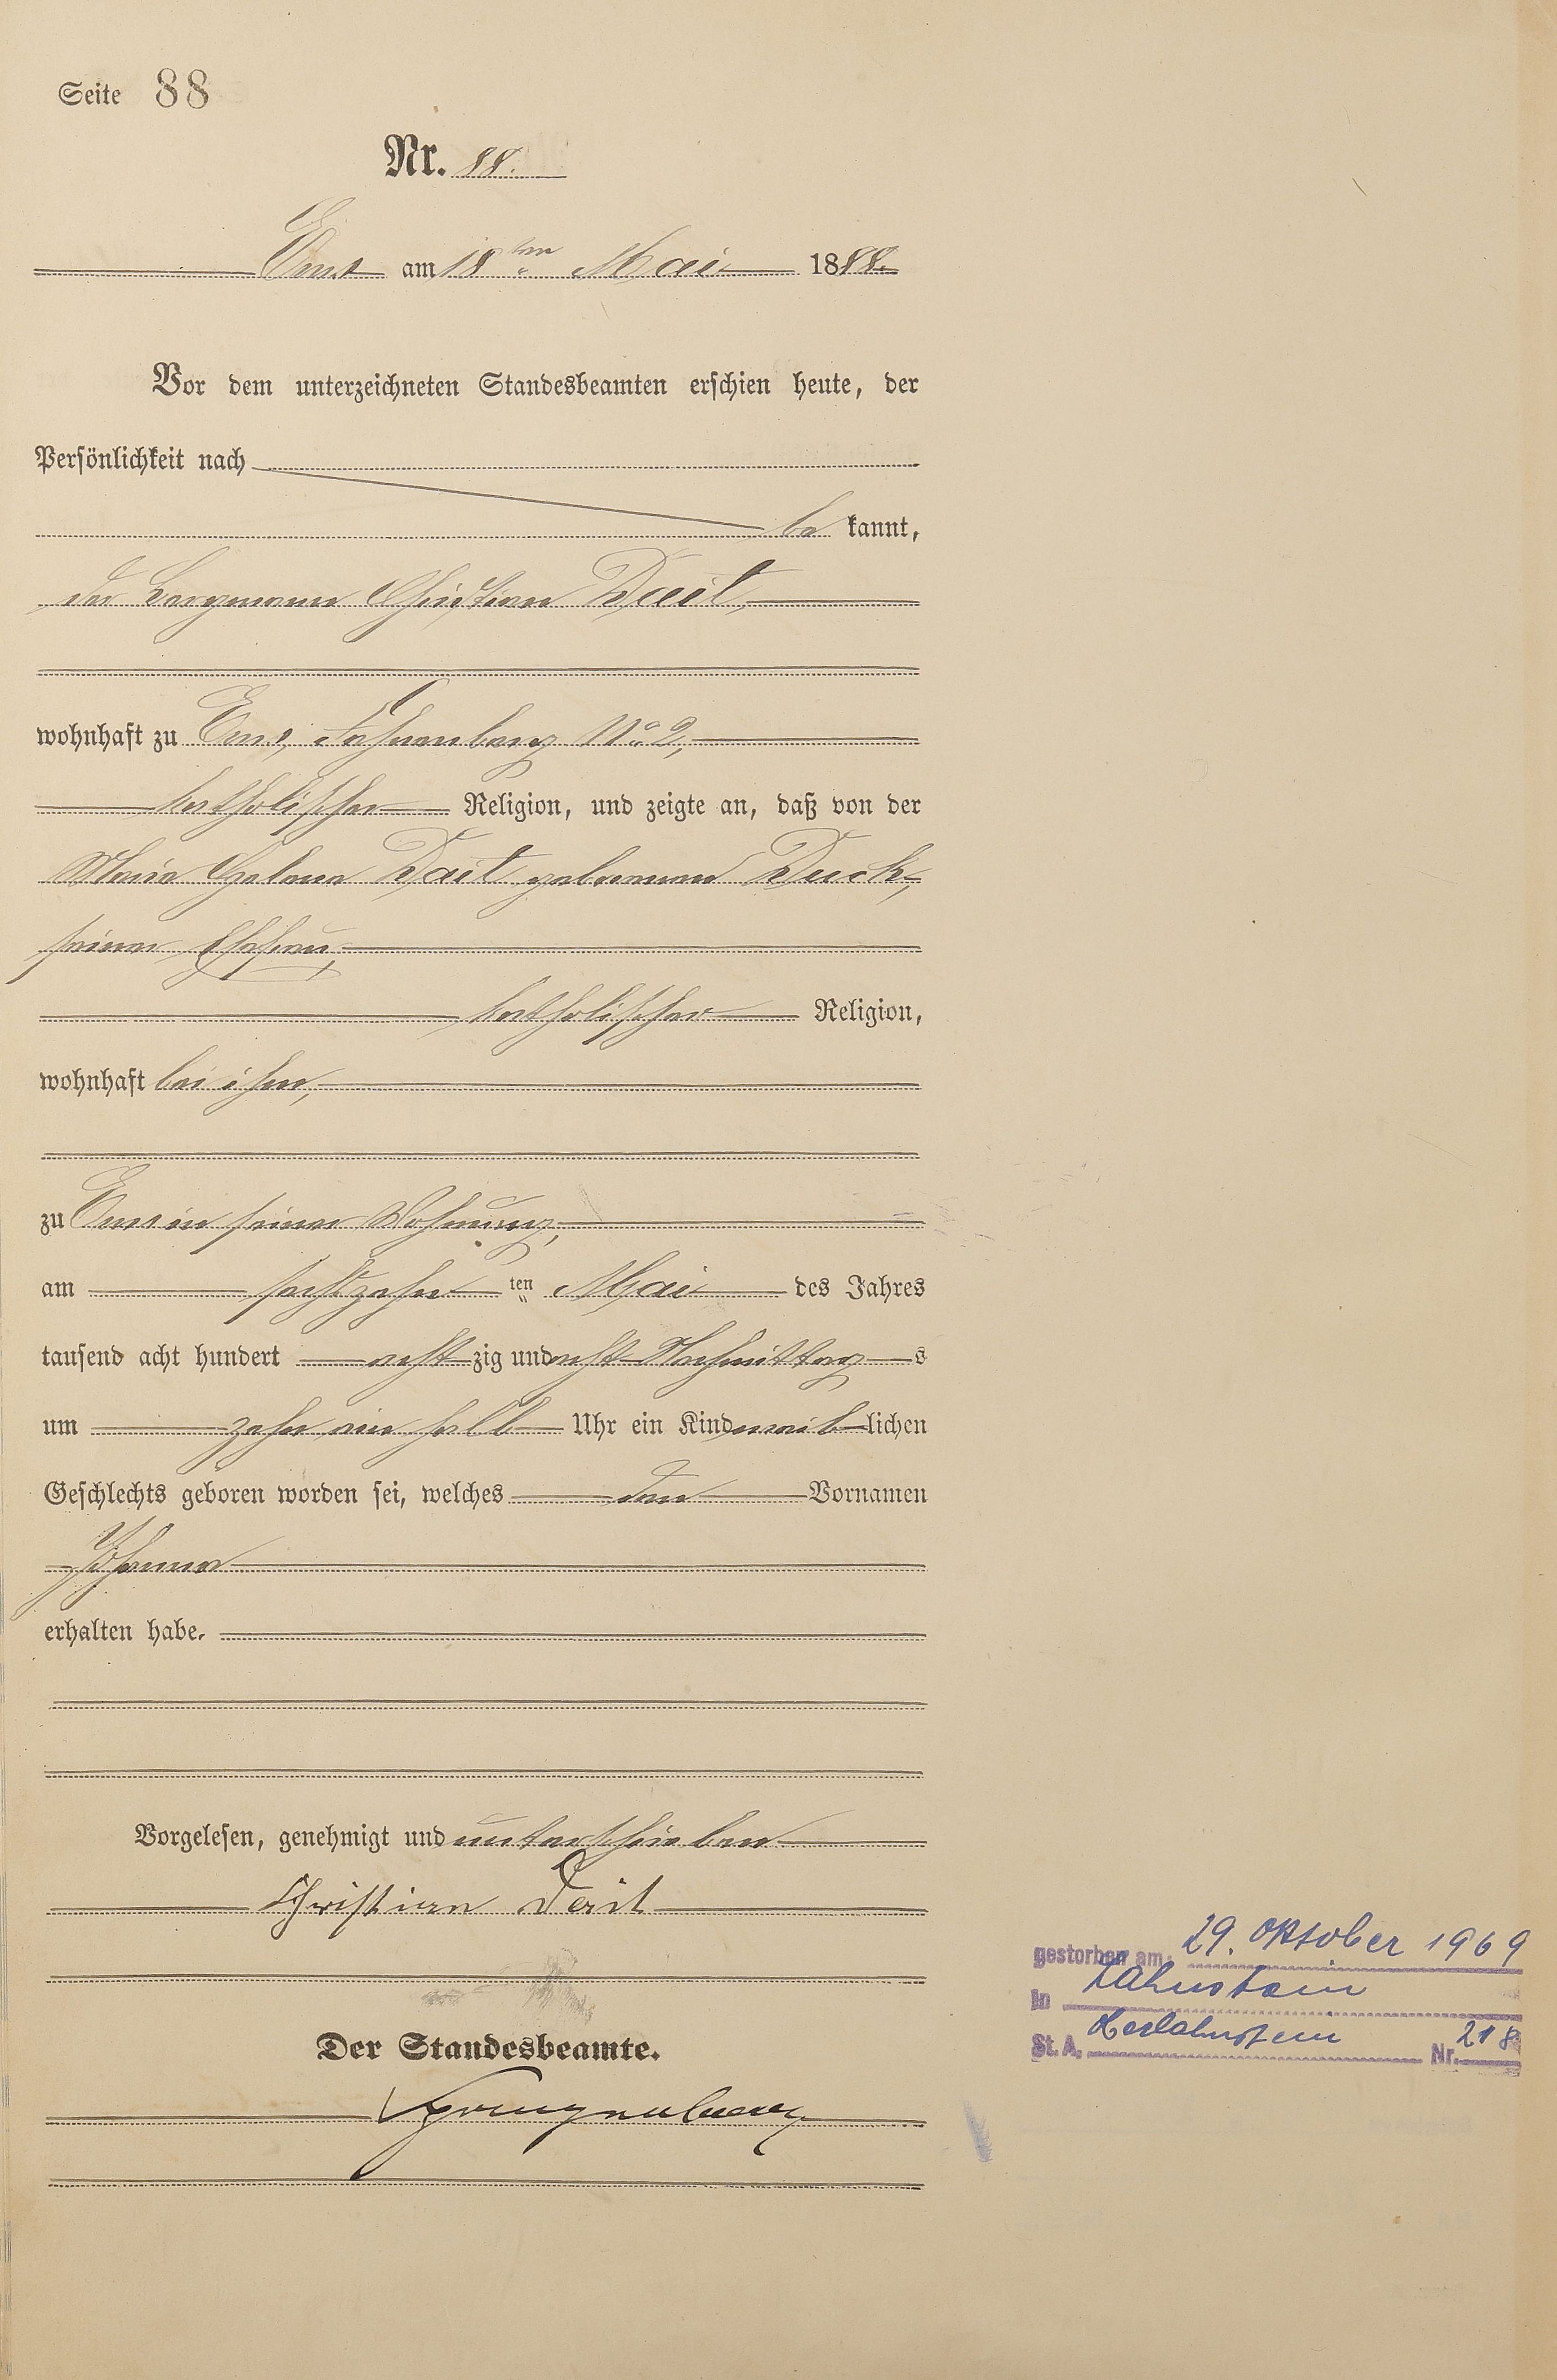 Seite 88
Nr. 88.
Ems am 18ten Mai 1888.
Vor dem unterzeichneten Standesbeamten erschien heute, der
Persönlichkeit nach
be kannt,
der Bergmann Christian Dait,
wohnhaft zu Ems, Fahnenberg No 2,
katholischer Religion, und zeigte an, daß von der
Maria Helena Dait geborenen Duck,
seiner Ehefrau,
katholischer Religion,
wohnhaft bei ihm,
zu Ems in seiner Wohnung,
am sechszehn ten Mai des Jahres
tausend acht hundert acht zig und acht Nachmittag s
um zehn ein halb Uhr ein Kind weib lichen
Geschlechts geboren worden sei, welches den Vornamen
Johanna
erhalten habe.
Vorgelesen, genehmigt und unterschrieben
Christian Dait
Der Standesbeamte.
gestorben am 29. Oktober 1969
in Lahnstein
St. A. Nr. 218